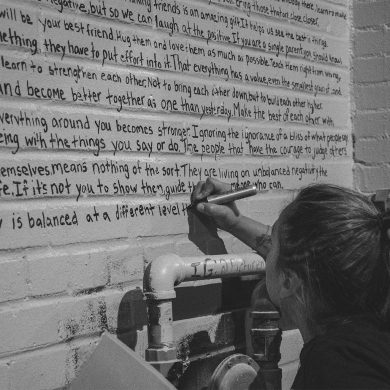 bring those that do close, closer,
negative, but so we can laugh at the positive. If you are a single parent you should know,
will be your best friend. Hug them and love them as much as possible. Teach them right from wrong,
something, they have to put effort into it. That everything has a value, even the smallest grain of sand.
learn to strengthen each other, Not to bring each other down, but to build each other higher.
and become better together as one than yesterday. Make the best of each other with
everything around you becomes stronger. Ignoring the ignorance of a bliss of what people say
with the things you say or do. The people that have the courage to judge others
themselves, means nothing of the sort. They are living on unbalanced negativity the
life. If it's not you to show them, guide them to some who can.
is balanced at a different level
IG: